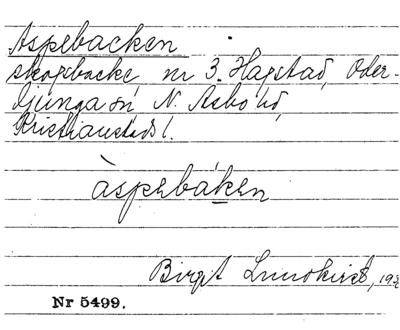 Aspebacken
skogsbacke, nr 3. Hagstad, Oder-
ljunga sn, N. Åsbo hd,
Kristianstads l.
àspebáken
Birgit Lundkvist, 193
Nr 5499.